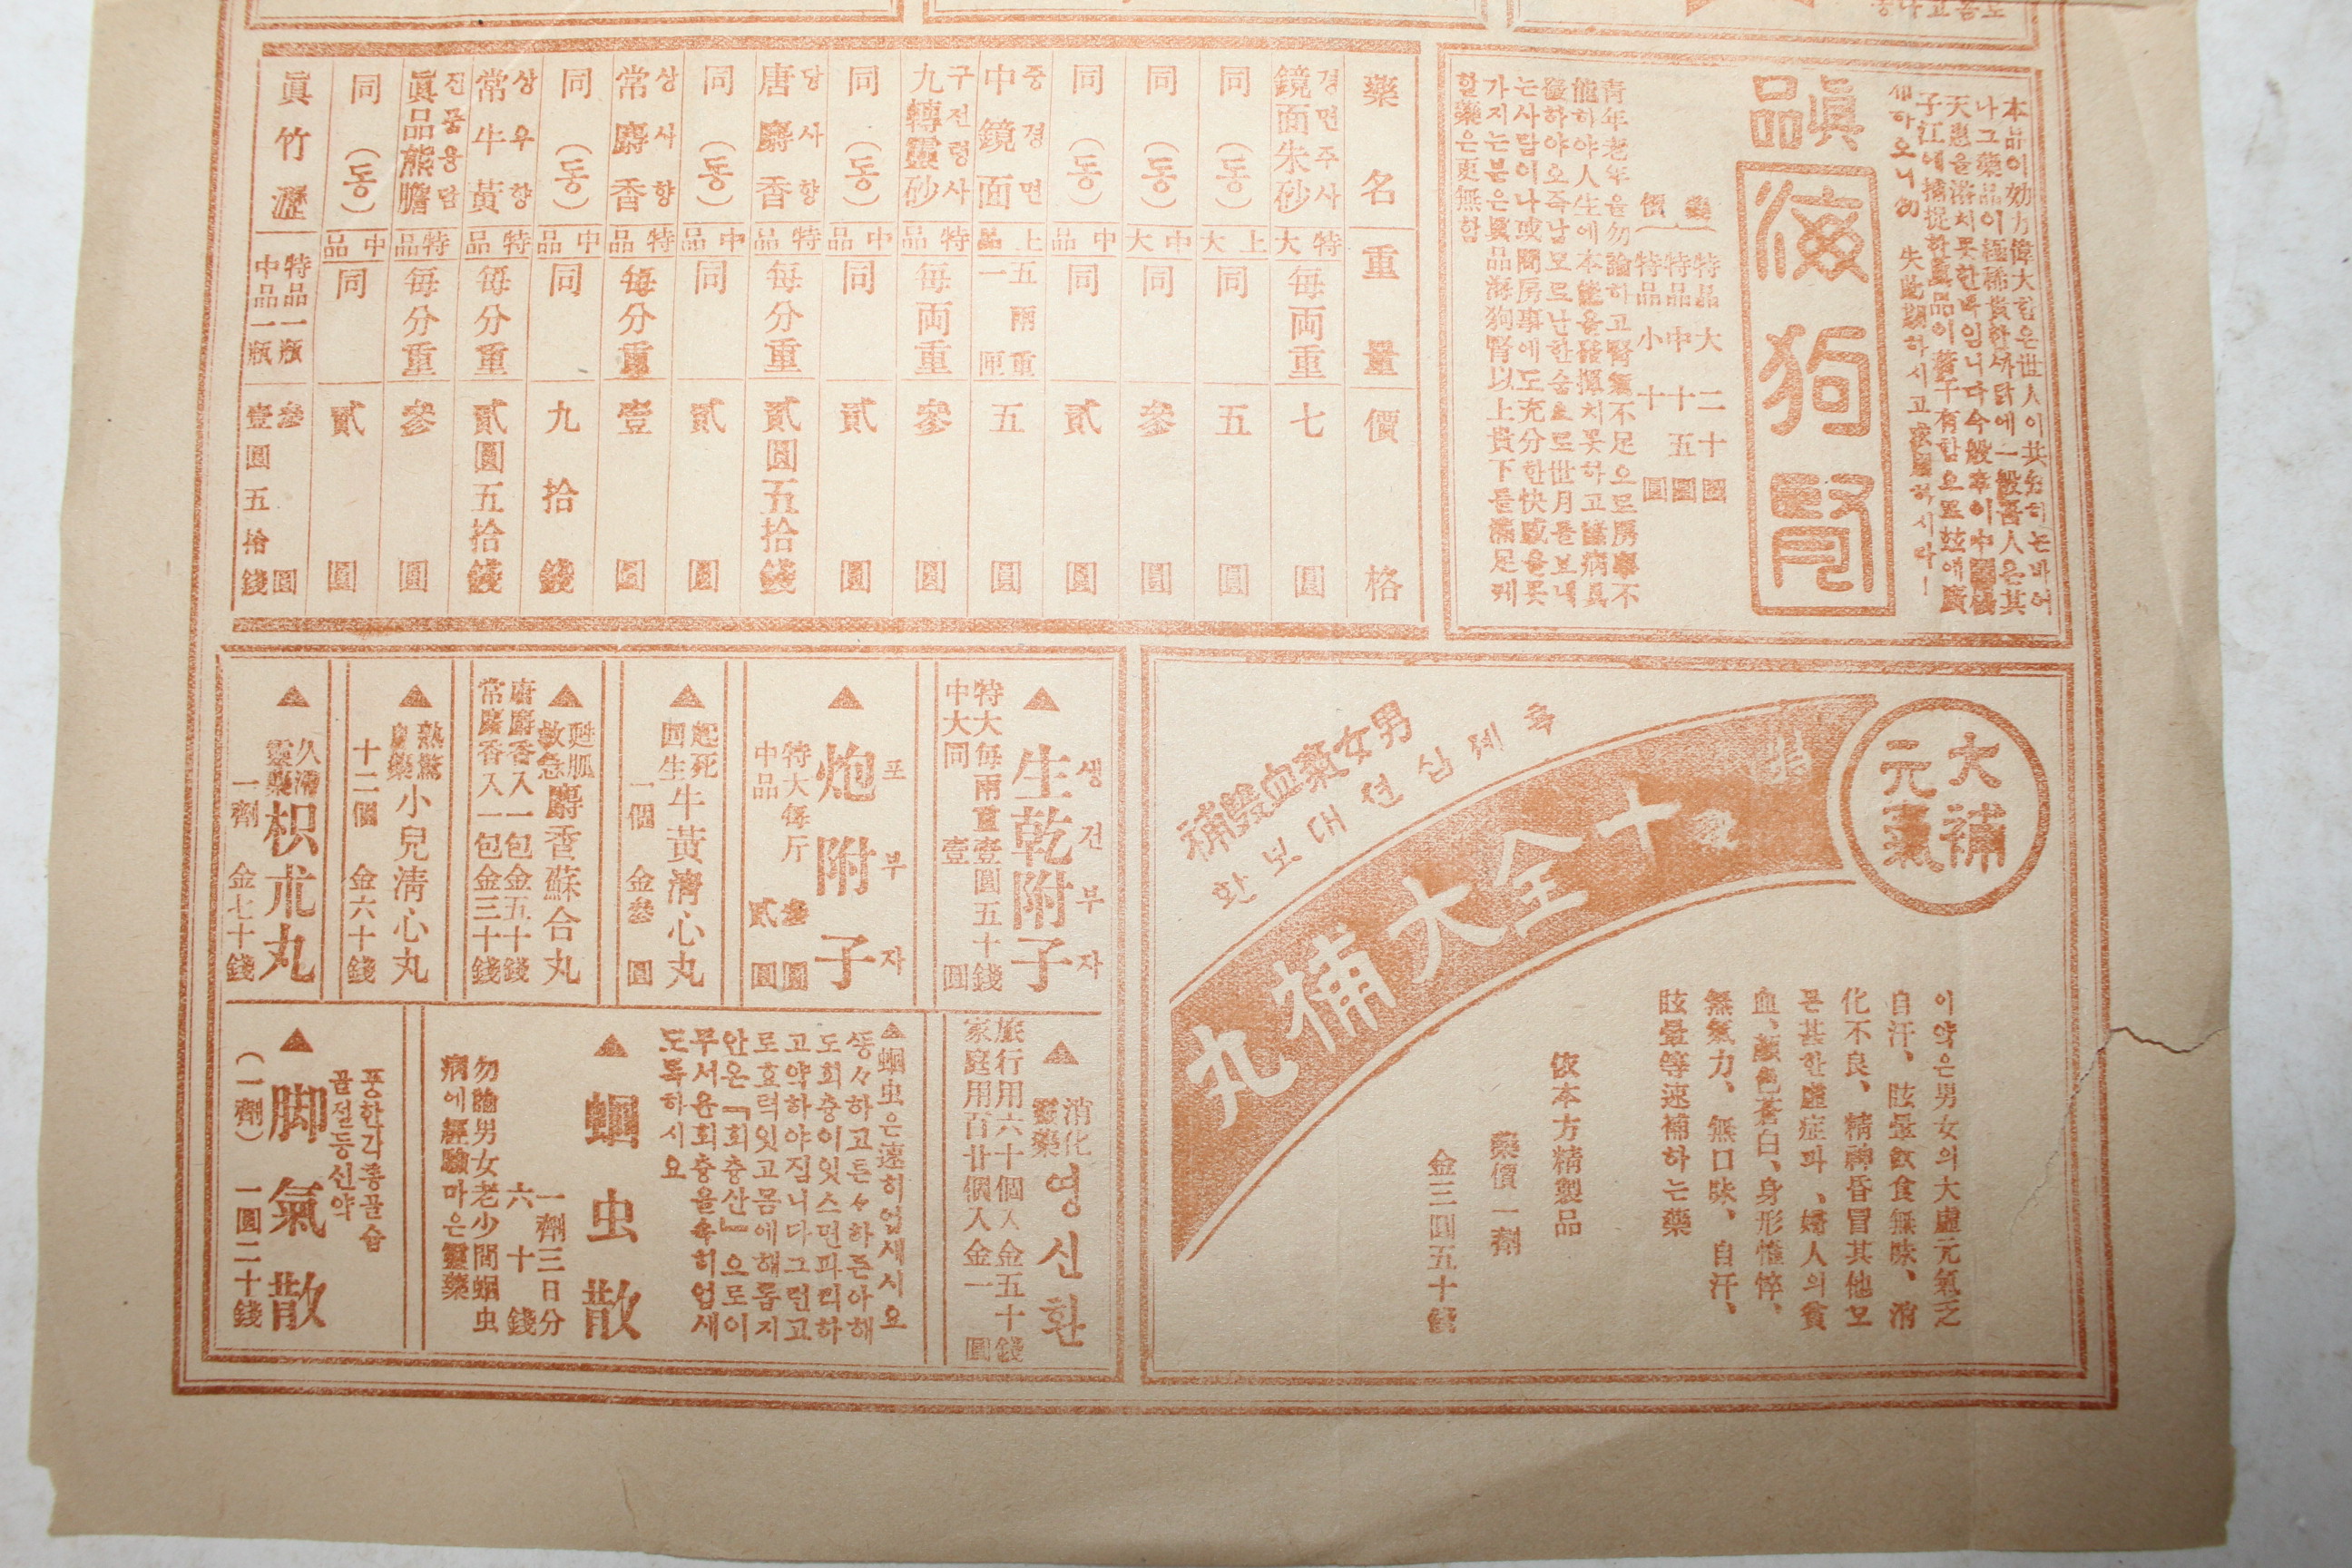 眞品
海狗腎
本品이 効力偉大함은 世人이 共知하는바어
나 그 藥品이 極稀貴한 까닭에 一般吾人은 其
子江에 捕捉한 眞品이 若干有함으로 玆에 廣
藥價
特品大 二十圓
特品中 十五圓
特品小 十圓
青年老年을 勿論하고 腎氣不足으로 房事不
能하야 人生에 本能을 發揮치못하고
는 사람이나 或 閨房事에도 充分한 快感을 못
가지는분은 眞品海狗腎以上 貴下를 滿足케
할 藥은 更無함
藥名 重量 價格
鏡面朱砂 경면주사 特大 每両重 七圓
同(동) 上大 同 五圓
同(동) 中大 同 參圓
同(동) 中品 同 貳圓
中鏡面 중경면 上品 五兩重一匣 五圓
九轉靈砂 구전령사 特品 每両重 參圓
同(동) 中品 同 貳圓
唐麝香 당사향 特品 每分重 貳圓五拾錢
同(동) 中品 同 貳圓
常麝香 상사향 特品 每分重 壹圓
同(동) 中品 同 九拾錢
常牛黃 상우향 特品 每分重 貳圓五拾錢
眞品熊膽 진품웅담 特品 每分重 參圓
同(동) 中品 同 貳圓
眞竹瀝 特品一瓶 參圓
中品一瓶 壹圓五拾錢
大補元氣
十全大補丸
男女氣血雙補
이약은 男女의 大虛元氣乏
自汗、眩暈飮食無味、消
化不良、精神昏冒其他모
든 甚한 虛症과、婦人의 貧
血、顔色蒼白、身形憔悴、
無氣力、無口味、自汗、
眩暈等速補하는藥
依本方精製品
藥價一劑
金三圓五十錢
▲生乾附子 생건부자
特大每兩重壹圓五十錢
中大同 壹圓
▲炮附子 포부자
特大每斤 參圓
中品 貳圓
▲起死回生 牛黃淸心丸
一個 金參圓
▲甦胍救急 麝香蘇合丸
唐麝香入一包金五十錢
常麝香入一包金三十錢
▲熱驚良藥 小兒淸心丸
十二個 金六十錢
▲久滯靈藥 枳朮丸
一劑 金七十錢
▲消化靈藥 영신환
旅行用六十個入金五十錢
家庭用百廿個入金一圓
▲蛔虫은 速히 업새시요
생々하고 튼々하든 아해
도 회충이 잇스면 파리하
고 약하야집니다 그런고
로 효력잇고 몸에 해롭지
안온「회충산」으로 이
무서운 회충을 속히 업새
도록 하시요
▲蛔虫散
一劑三日分
六十錢
勿論男女老少間蛔虫
病에 經驗마은 靈藥
▲脚氣散
풍한각통골습
골절등신약
(一劑) 一圓二十錢